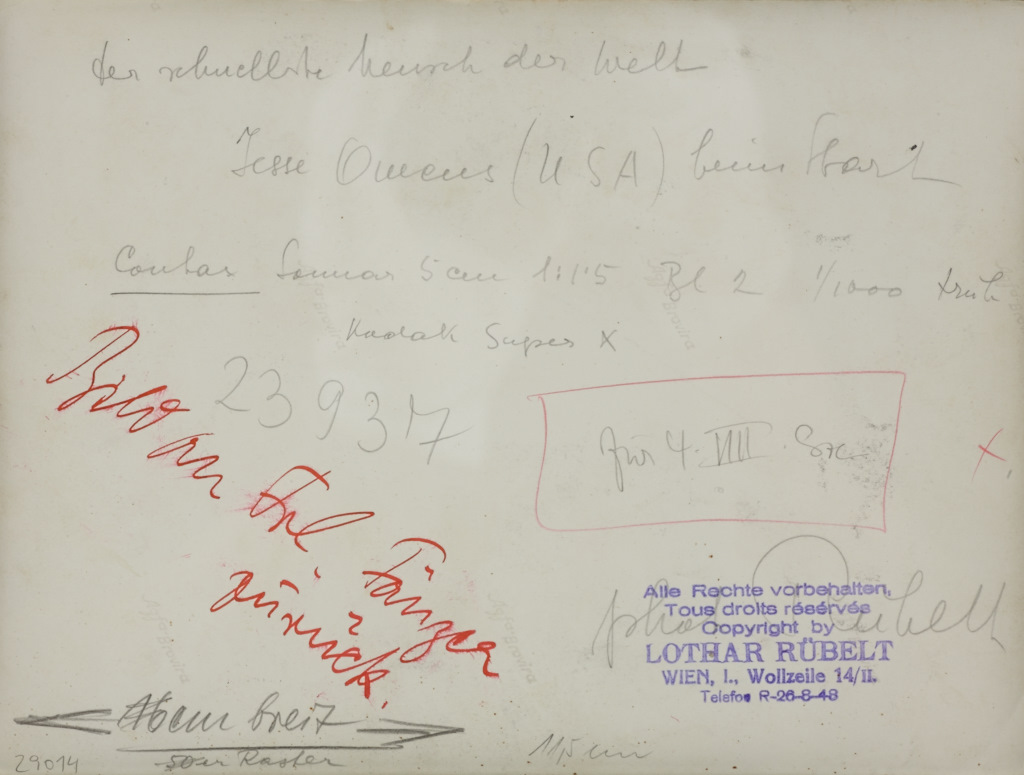 der schnellste Mensch der Welt
Jesse Owens (USA) beim Start
Contax Sonnar 5 cm 1:1'5 Bl 2 1/1000 trüb
Kodak Super X
23937
für 4. VIII.
x
Bild an Frl. Tänzer
zurück.
photo Rübelt
Alle Rechte vorbehalten,
Tous droits résérvés
Copyright by
LOTHAR RÜBELT
WIEN, I., Wollzeile 14/II.
Telefon R-26-8-48
breit
50er Raster
11,5 cm
29014